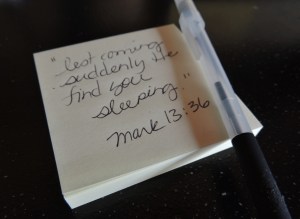 "lest coming
suddenly He
find you
sleeping."
Mark 13:36